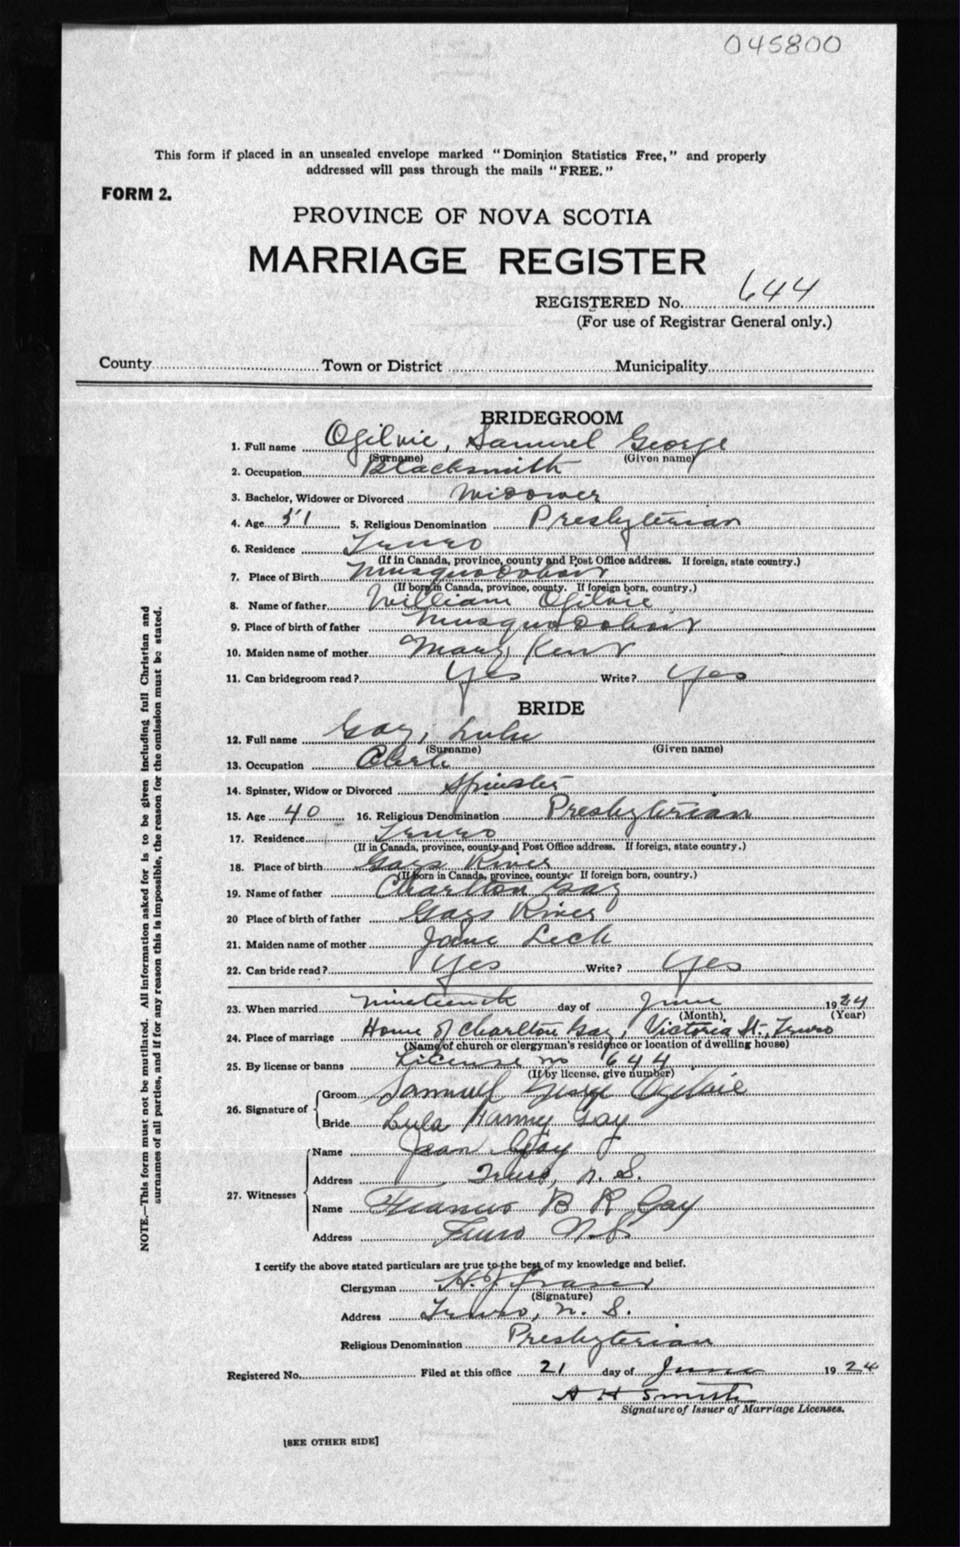 045800
This form if placed in an unsealed envelope marked "Dominion Statistics Free," and properly
addressed will pass through the mails "FREE."
FORM 2.
PROVINCE OF NOVA SCOTIA
MARRIAGE REGISTER
REGISTERED No. 644
(For use of Registrar General only.)
County Town or District Municipality
BRIDEGROOM
1. Full name Ogilvie, Samuel George
(Surname) (Given name)
2. Occupation Blacksmith
3. Bachelor, Widower or Divorced Widower
4. Age 51 5. Religious Denomination Presbyterian
6. Residence Truro
(If in Canada, province, county and Post Office address. If foreign, state country.)
7. Place of Birth Musquodoboit
(If born in Canada, province, county. If foreign born, country.)
8. Name of father William Ogilvie
9. Place of birth of father Musquodoboit
10. Maiden name of mother Mary Kent
11. Can bridegroom read? Yes Write? Yes
BRIDE
12. Full name Gay, Lulu
(Surname) (Given name)
13. Occupation Clerk
14. Spinster, Widow or Divorced Spinster
15. Age 40 16. Religious Denomination Presbyterian
17. Residence Truro
(If in Canada, province, county and Post Office address. If foreign, state country.)
18. Place of birth Gays River
(If born in Canada, province, county. If foreign born, country.)
19. Name of father Charlton Gay
20 Place of birth of father Gays River
21. Maiden name of mother Jane Leck
22. Can bride read? Yes Write? Yes
23. When married nineteenth day of June 1924
(Month), (Year)
24. Place of marriage Home of Charlton Gay, Victoria St., Truro
(Name of church or clergyman's residence or location of dwelling house)
25. By license or banns License no 644
(If by license, give number)
26. Signature of Groom Samuel George Ogilvie
Bride Lula Gay
27. Witnesses Name Jean Gay
Address Truro, N. S.
Name Francis B R Gay
Address Truro N.S.
I certify the above stated particulars are true to the best of my knowledge and belief.
Clergyman H. J. Fraser
(Signature)
Address Truro, N. S.
Religious Denomination Presbyterian
Registered No. Filed at this office 21 day of June 1924
A H Smith
Signature of Issuer of Marriage Licenses.
[SEE OTHER SIDE]
NOTE.—This form must not be mutilated. All information asked for is to be given including full Christian and
surnames of all parties, and if for any reason this is impossible, the reason for the omission must be stated.